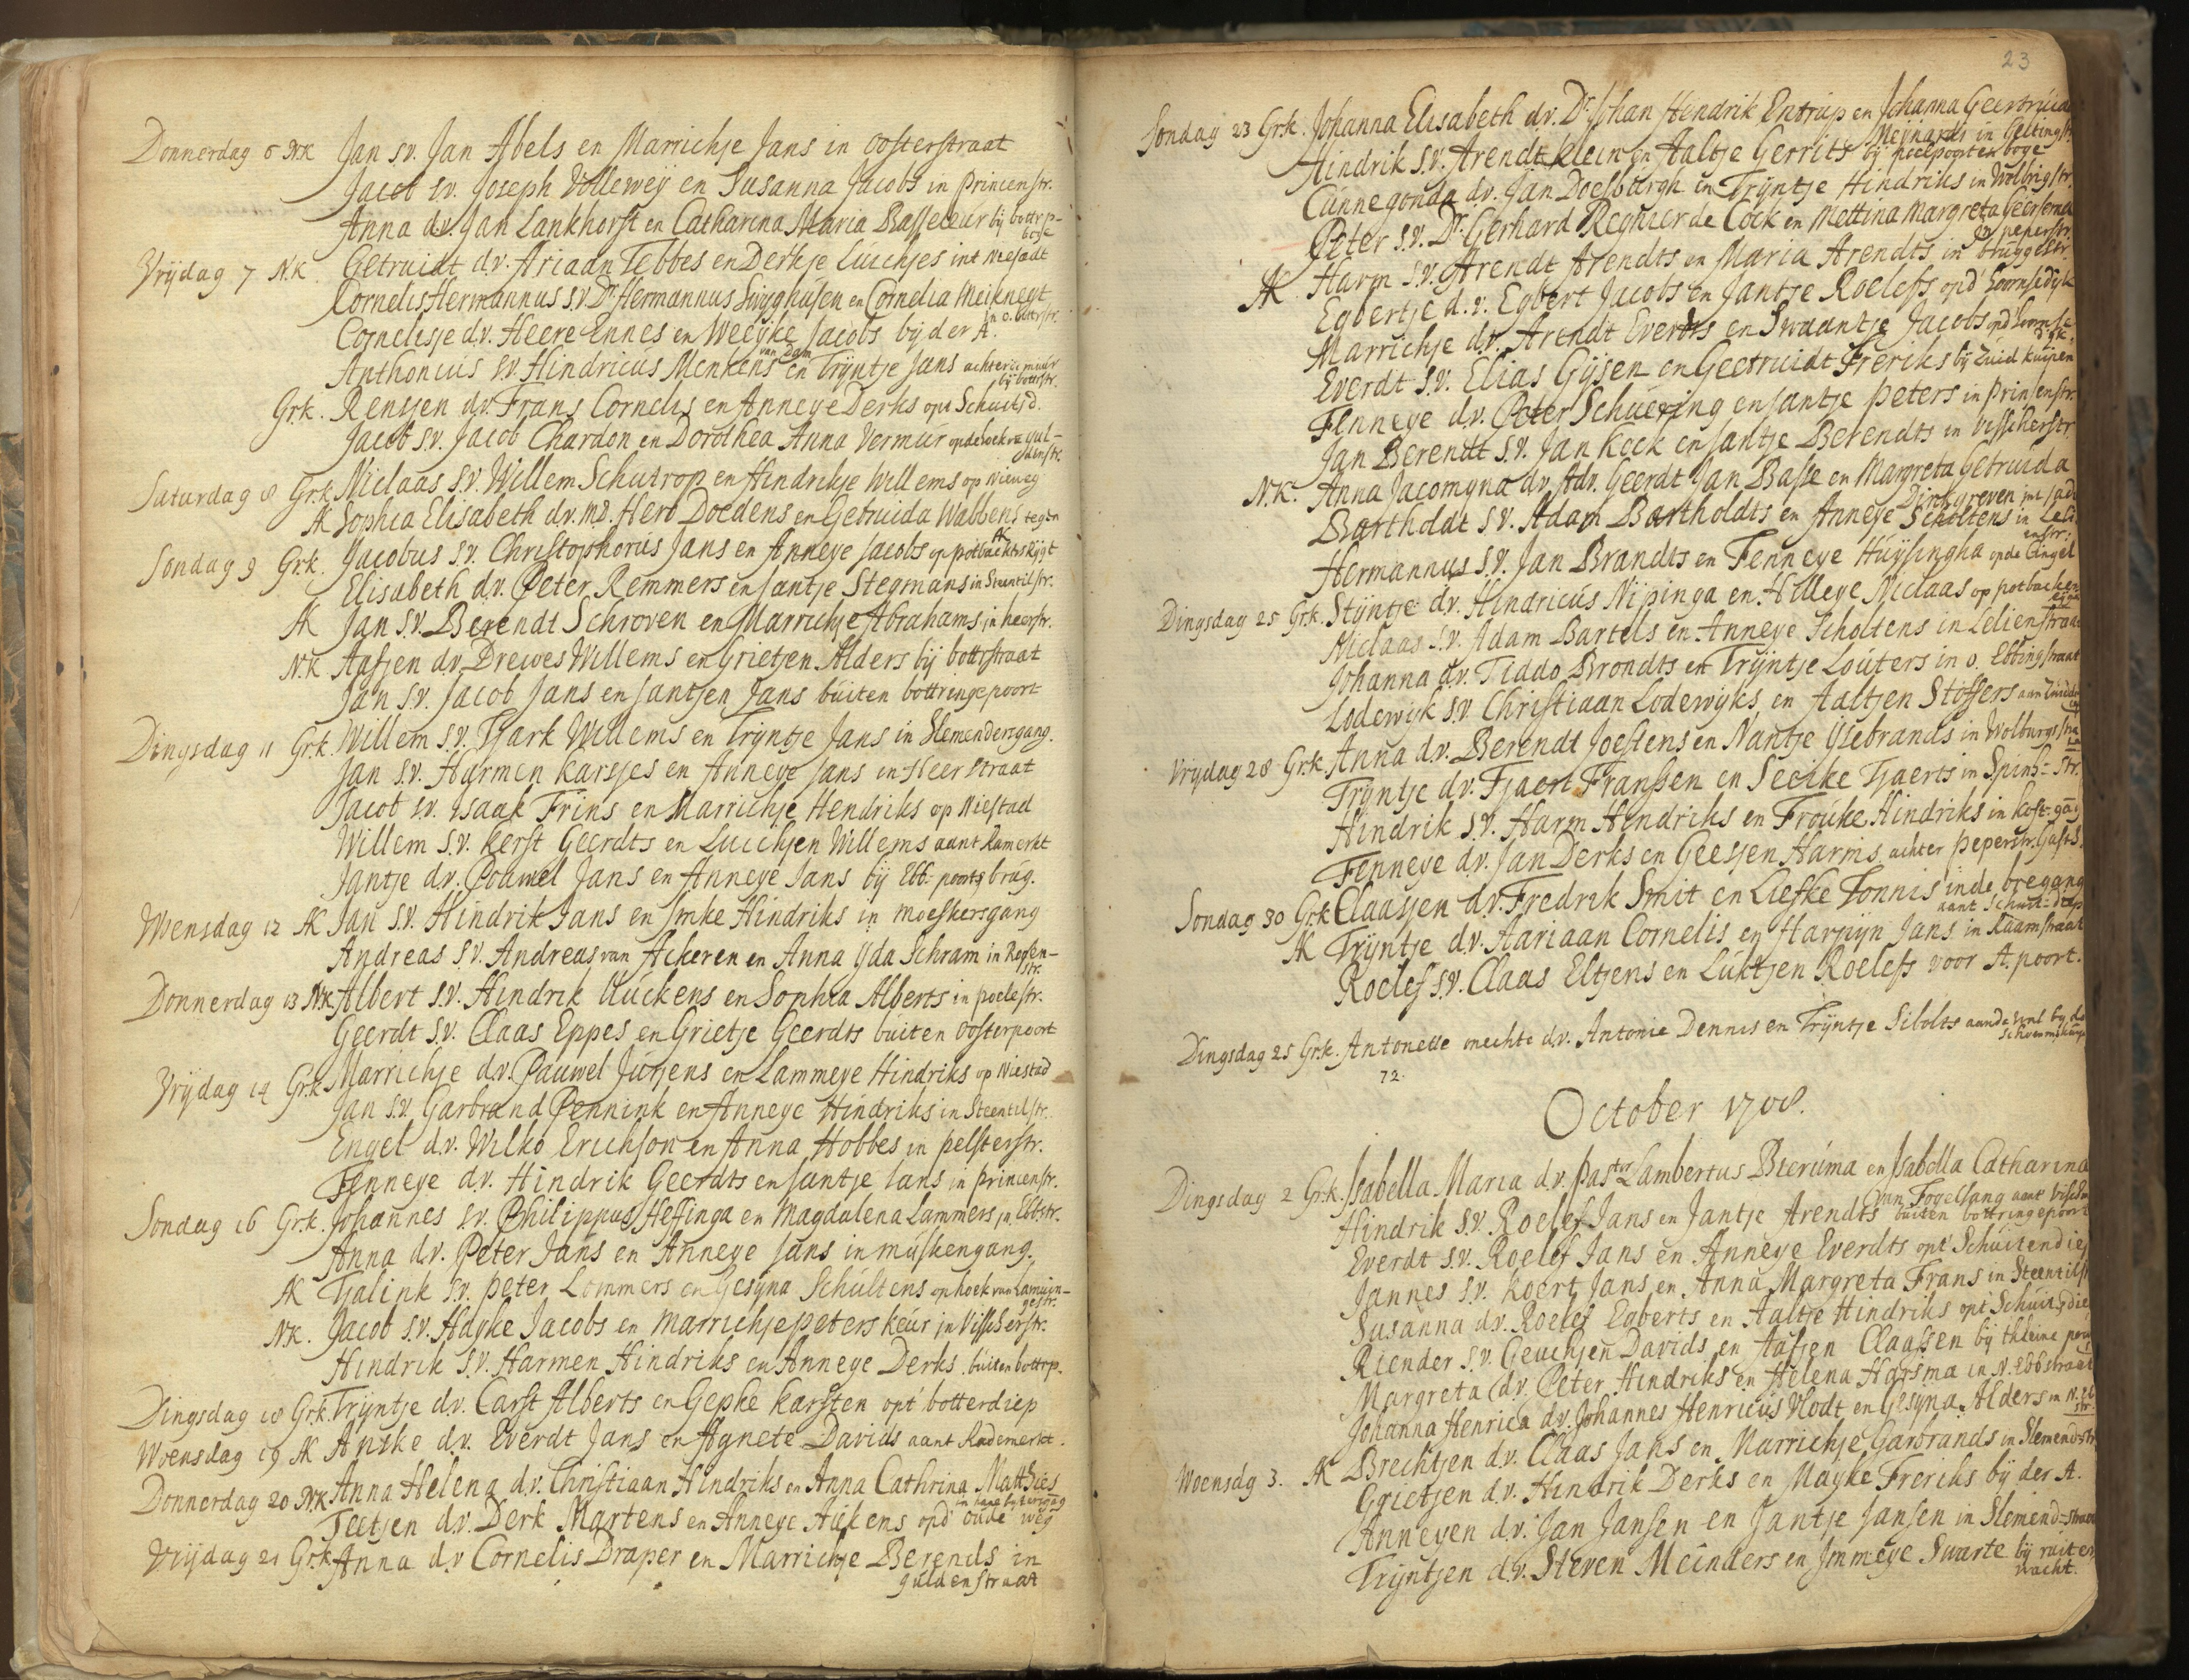 Donnerdag 6 NK Jan s.v. Jan Abels en Marrichje Jans in oosterstraat
Jacob s.v. Joseph Vollewey en Susanna Jacobs in princenstr.
Anna d.v. Jan Lankhorst en Catharina Maria Basseleúr bij bottrp-
boge
Vrijdag 7 N.K. Getruidt d.v. Ariaan Tebbes en Derkje Lúichjes int Niesadt
Cornelis Hermannus s.v. Dr. Hermannus Súyghúsen en Cornelia Meiknegt
in o. bottrstr.
Cornelisje d.v. Heere Ennes en Weeyke Jacobs bij der A.
Anthoniús s.v. Hindricús Menkens van dam en Trijntje Jans achter de múúr
bij bottrstr.
Grk. Rensjen d.v. Frans Cornelis en Anneye Derks opt Schuitsd.
Jacob s.v. Jacob Chardon en Dorothea Anna Vermúr op de hoek v. gul-
denstr.
Saturdag 8 Grk Niclaas s.v. Willem Schutrop en Hindrikje Willems op Nieweg
AK Sophia Elisabeth d.v. Mr. Hero Doedens en Getruida Wabbens tegen
AK
Sondag 9 Grk. Jacobus s.v. Christophorús Jans en Anneye Jacobs op potbackersrijgt
Elisabeth d.v. Peter Remmers en Jantje Stegmans in Steentilstr.
AK Jan s.v. Berendt Schroven en Marrichje Abrahams in heerstr.
N.K Aafjen d.v. Drewes Willems en Grietjen Alders bij bottrstraat
Jan s.v. Jacob Jans en Jantjen Jans búiten bottringepoort
Dingsdag 11 Grk. Willem s.v. Tjark Willems en Trijntje Jans in Slemendersgang.
Jan s.v. Harmen Karsjes en Anneye Jans in Heerstraat
Jacob s.v. Isaak Frins en Marrichje Hendriks op Niestad
Willem s.v. Kerst Geerdts en Luichjen Willems aant Ramerkt
Jantje d.v. Pouwel Jans en Anneye Jans bij Ebb-poorts brúg.
Wensdag 12 AK Jan s.v. Hindrik Jans en Imke Hindriks in moeskersgang
Andreas s.v. Andreas van Ackeren en Anna Yda Schram in Rosen-
str.
Donnerdag 13 NK Albert s.v. Hindrik Aúckens en Sophia Alberts in poelestr.
Geerdt s.v. Claas Eppes en Grietje Geerdts búiten oosterpoort
Vrijdag 14 Grk. Marrichje d.v. Pauwel Júrjens en Lammeye Hindriks op Niestad
Jan s.v. Garbrand Pennink en Anneye Hindriks in Steentilstr.
Engel d.v. Wilko Erickson en Anna Hobbes in pelsterstr.
Fenneye d.v. Hindrik Geerdts en Jantje Jans in princenstr.
Sondag 16 Grk. Johannes s.v. Philippus Heffinga en Magdalena Lammers in Ebbstr.
Anna d.v. Peter Jans en Anneye Jans in múskengang.
AK Tjalink s.v. peter Lommers en Gesyna Schúltens op hoek van Lamuin-
gestr.
NK. Jacob s.v. Hayke Jacobs en Marrichje peters keúr in Visscherstr.
Hindrik s.v. Harmen Hindriks en Anneye Derks búiten bottrp.
Dingsdag 18 Grk. Trijntje d.v. Carst Alberts en Gepke Karsten opt botterdiep
Woensdag 19 AK Anske d.v. Everdt Jans en Agnete Davids aant Rademerkt.
Donnerdag 20 NK Anna Helena d.v. Christiaan Hindriks en Anna Cathrina Matthies
Teetjen d.v. Derk Martens en Anneye Aikens opd' oude weg
Vrijdag 21 Grk Anna d.v. Cornelis Draper en Marrichje Berends in
guldenstraat
23
Sondag 23 Grk. Johanna Elisabeth d.v. Dr. Johan Hendrik Entrúp en Johanna Geertrúida
Meinards in Geltingstr.
Hindrik s.v. Arendt Klein en Aaltje Gerrits bij poelpoorten boge
Cúnnegonda d.v. Jan Doesburgh en Trijntje Hindriks in Wolbrigstr.
Peter s.v. Dr. Gerhard Reghier de Cock en Mettina Margreta Geersema
in peperstr.
AK Harm s.v. Arendt Arendts en Maria Arendts in brúggestr.
Egbertje d.v. Egbert Jacobs en Jantje Roelefs opd' hoornsedijk
Marrichje d.v. Arendt Everts en Swaantje Jacobs opd' hoornse
dijk.
Everdt s.v. Elias Gijsen en Geetruidt Freriks bij Zúid kúipen
Fenneye d.v. Peter Schúering en Jantje peters in prinsenstr.
Jan Berendt s.v. Jan Kock en Jantje Berendts in visscherstr.
N.K. Anna Jacomyna d.v. Adv. Geerdt Jan Basse en Margreta Getruida
Dinkgreven int Jad
Bartholdt s.v. Adam Bartholdts en Anneye Scholtens in Leli
enstr.
Hermannus s.v. Jan Brandts en Fenneye Húysingha op de Angel
Dingsdag 25 Grk. Stijntje d.v. Hindricús Nipinga en Hilleye Niclaas op potbacken
Niclaas s.v. Adam Bartels en Anneye Scholtens in Lelienstraat
Johanna d.v. Tiddo Brondts en Trijntje Loúters in o. Ebbingstraat
Lodewijk s.v. Christiaan Lodewijks en Aaltjen Stoffers aan Zúider
Vrijdag 28 Grk. Anna d.v. Berendt Joestens en Nantje Ysebrands in Wolburgstra
Trijntje d.v. Tjaert Franssen en Seeike Tjaerts in Spins-str.
Hindrik s.v. Harm Hindriks en Froúke Hindriks in Kost-gāg
Fenneye d.v. Jan Derks en Geesjen Harms achter peperstr. Gasth.
Sondag 30 Grk Claasjen d.v. Fredrik Smit en Liefke Tonnis inde bregang
aant Schuit-diep
AK Trijntje d.v. Aariaan Cornelis en Harmijn Jans in Raamstraat
Roelef s.v. Claas Eltjens en Lúktjen Roelefs voor A. poort.
Dingsdag 25 Grk. Antonette onechte d.v. Antonie Dennis en Trijntje Sibolts aande wal by de
72.
October 1708.
Dingsdag 2 Grk. Isabella Maria d.v. Pastor Lambertus Bierúma en Isabella Catharina
van Fogelsang aant Vis
Hindrik s.v. Roelef Jans en Jantje Arendts buiten bottringepoort
Everdt s.v. Roelef Jans en Anneye Everdts opt' Schúitendiep
Jannes s.v. Koert Jans en Anna Margreta Frans in Steentilstr
Susanna d.v. Roelef Egberts en Aaltje Hindriks opt' Schúitsdie
Riender s.v. Geuchjen Davids en Aafjen Claassen bij t kleine poort
Margreta d.v. Peter Hindriks en Helena Harsma in N. Ebbstraat
Johanna Henrica d.v. Johannes Henricus Vlodt en Gesyna Alders in N. Eb
str.
Woensdg 3. AK Brechtjen d.v. Claas Jans en Marrichje Garbrands in Slemend-str
Grietjen d.v. Hindrik Derks en Mayke Freriks bij der A.
Anneyen d.v. Jan Jansen en Jantje Jansen in Slemend-straat
Trijntjen d.v. Steven Meinders en Immeye Swarte bij ruiter
wacht.